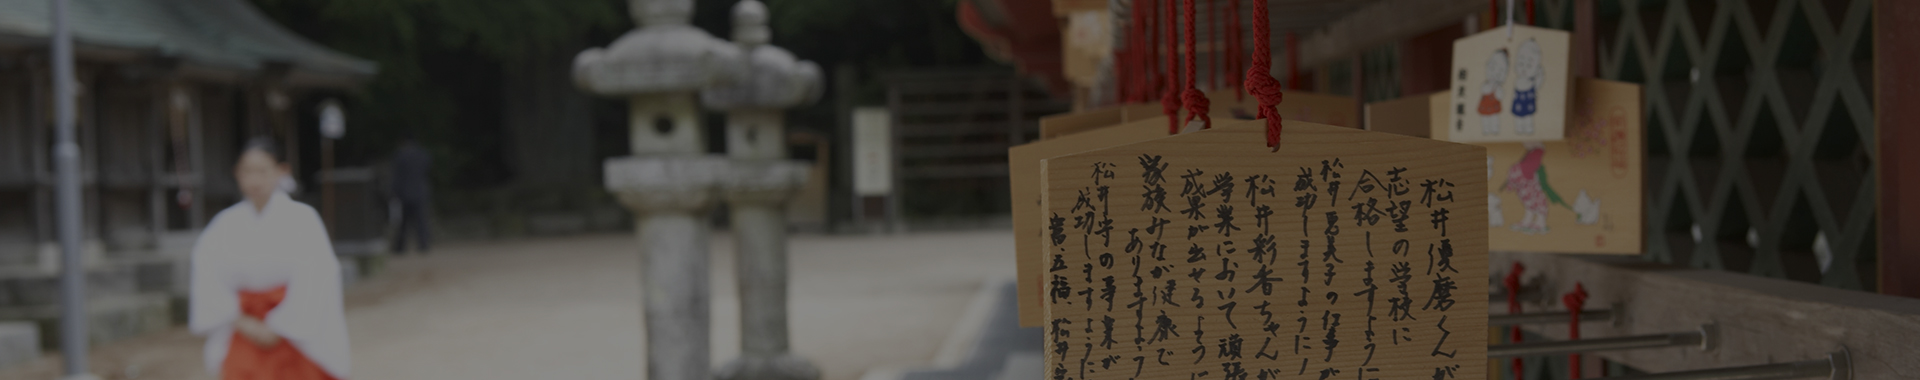 松井優磨くんが
志望の学校に
合格しますように
松井
の仕事が
成功しますように
松井彩香ちゃんが
学業において頑張
成果が出せるように
家族みなが健康で
ありますように
松井
の事業が
成功しますように